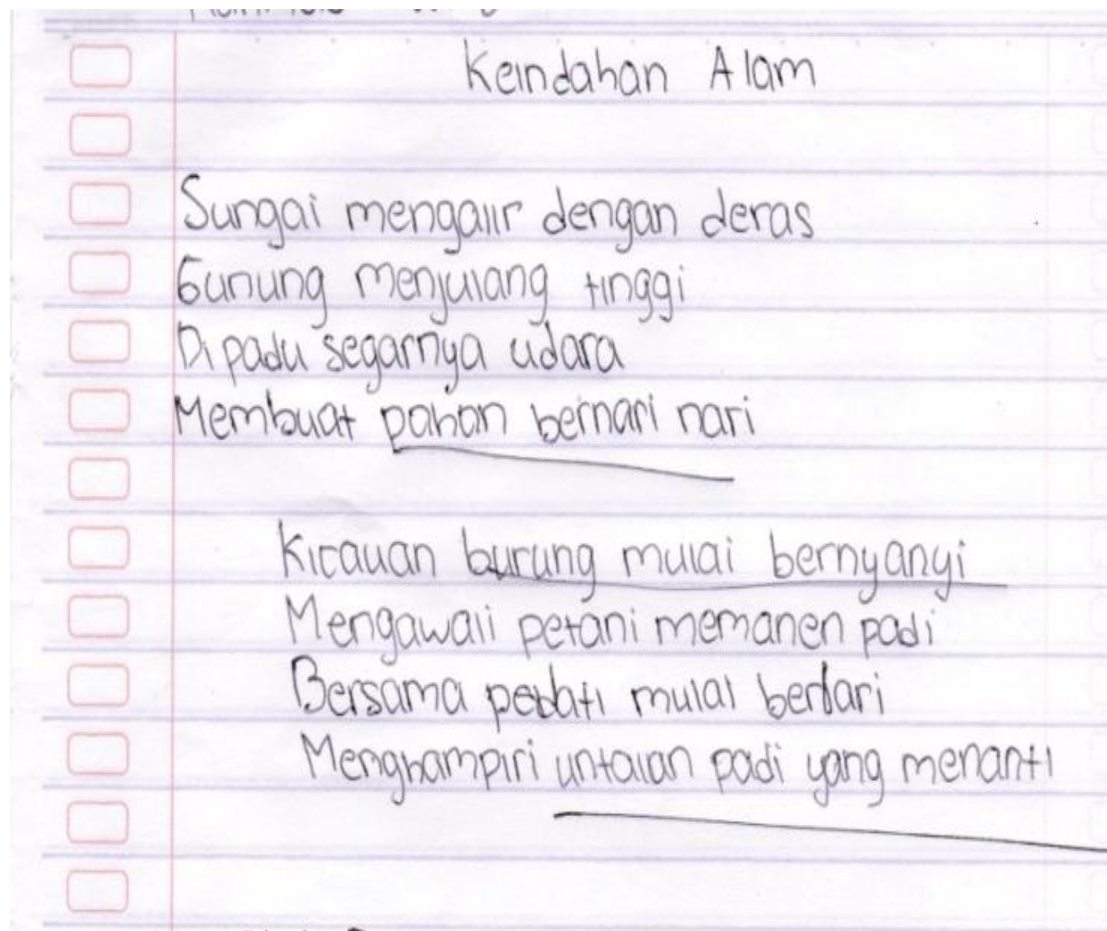 Keindahan Alam
Sungai mengalir dengan deras
Gunung menjulang tinggi
Dipadu segarnya udara
Membuat pohon bernari nari
Kicauan burung mulai bernyanyi
Mengawali petani memanen padi
Bersama pedati mulai berlari
Menghampiri untaian padi yang menanti